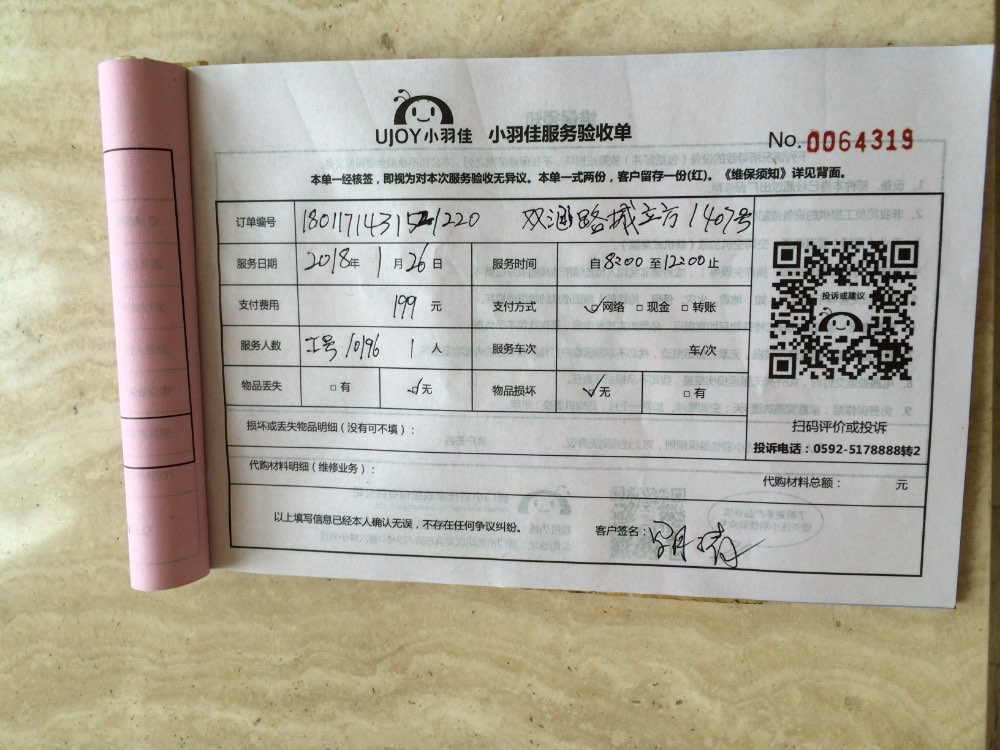 UJOY小羽佳 小羽佳服务验收单
No.0064319
本单一经核签，即视为对本次服务验收无异议。本单一式两份，客户留存一份(红)。《维保须知》详见背面。
订单编号 1220 路城立方1407号
服务日期 2018年1月26日 服务时间 自8:00至12:00止
支付费用 199元 支付方式 ☑网络 □现金 □转账
服务人数 工号10196 1人 服务车次 车/次
物品丢失 □有 ☑无 物品损坏 ☑无 □有
投诉或建议
扫码评价或投诉
投诉电话：0592-5178888转2
损坏或丢失物品明细（没有可不填）：
代购材料明细（维修业务）：
代购材料总额： 元
以上填写信息已经本人确认无误，不存在任何争议纠纷。
客户签名：